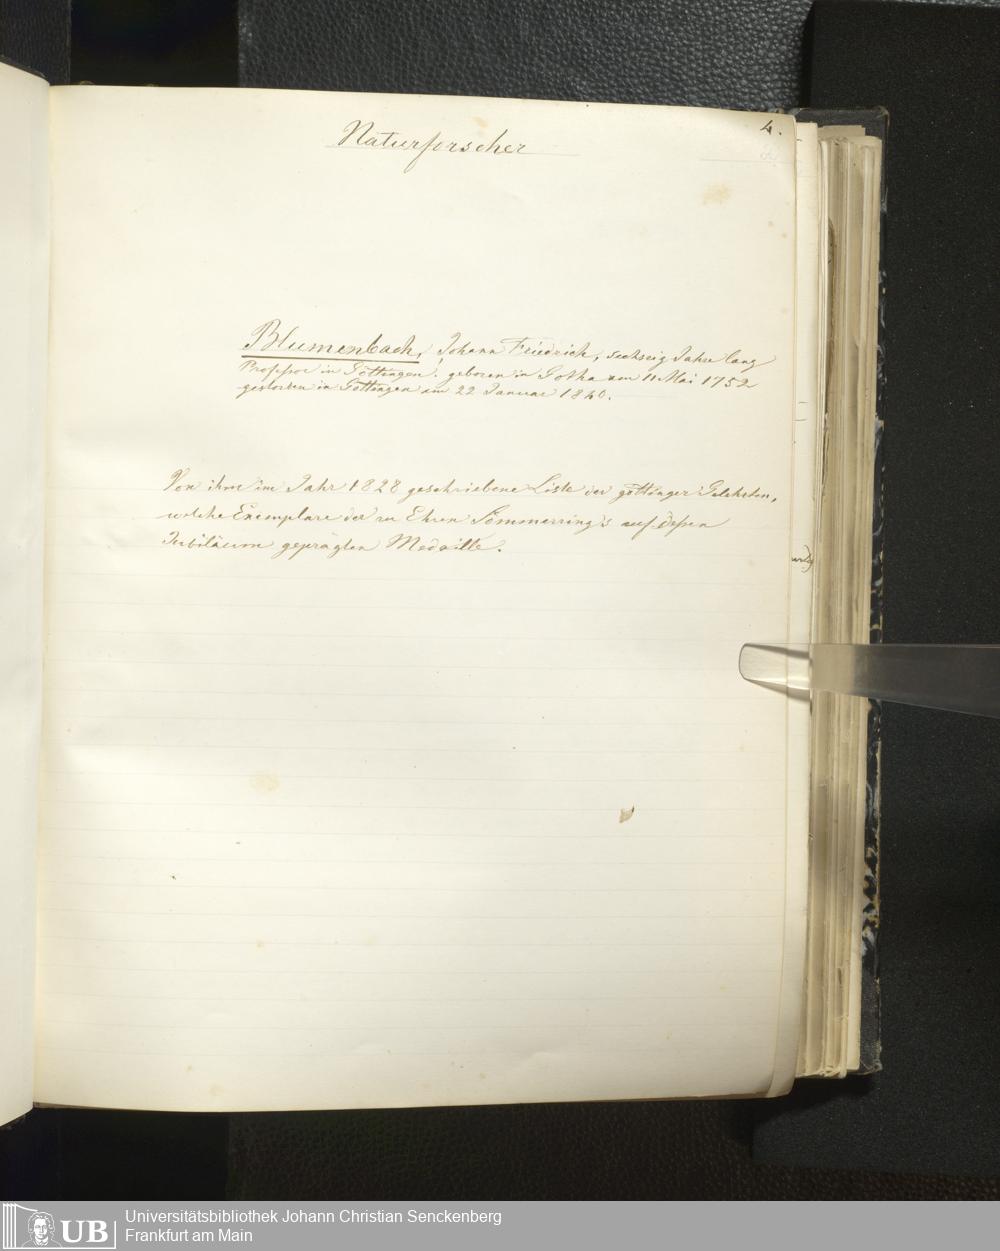 4.
Naturforscher
Blumenbach, Johann Friedrich, sechszig Jahre lang
Professor in Göttingen. geboren in Gotha am 11 Mai 1752
gestorben in Göttingen am 22 Januar 1840.
Von ihm im Jahr 1828 geschriebene Liste der göttinger Gelehrten,
welche Exemplare der zu Ehren Sömmerring's auf deßen
Jubiläum geprägten Medaille.
UB
Universitätsbibliothek Johann Christian Senckenberg
Frankfurt am Main